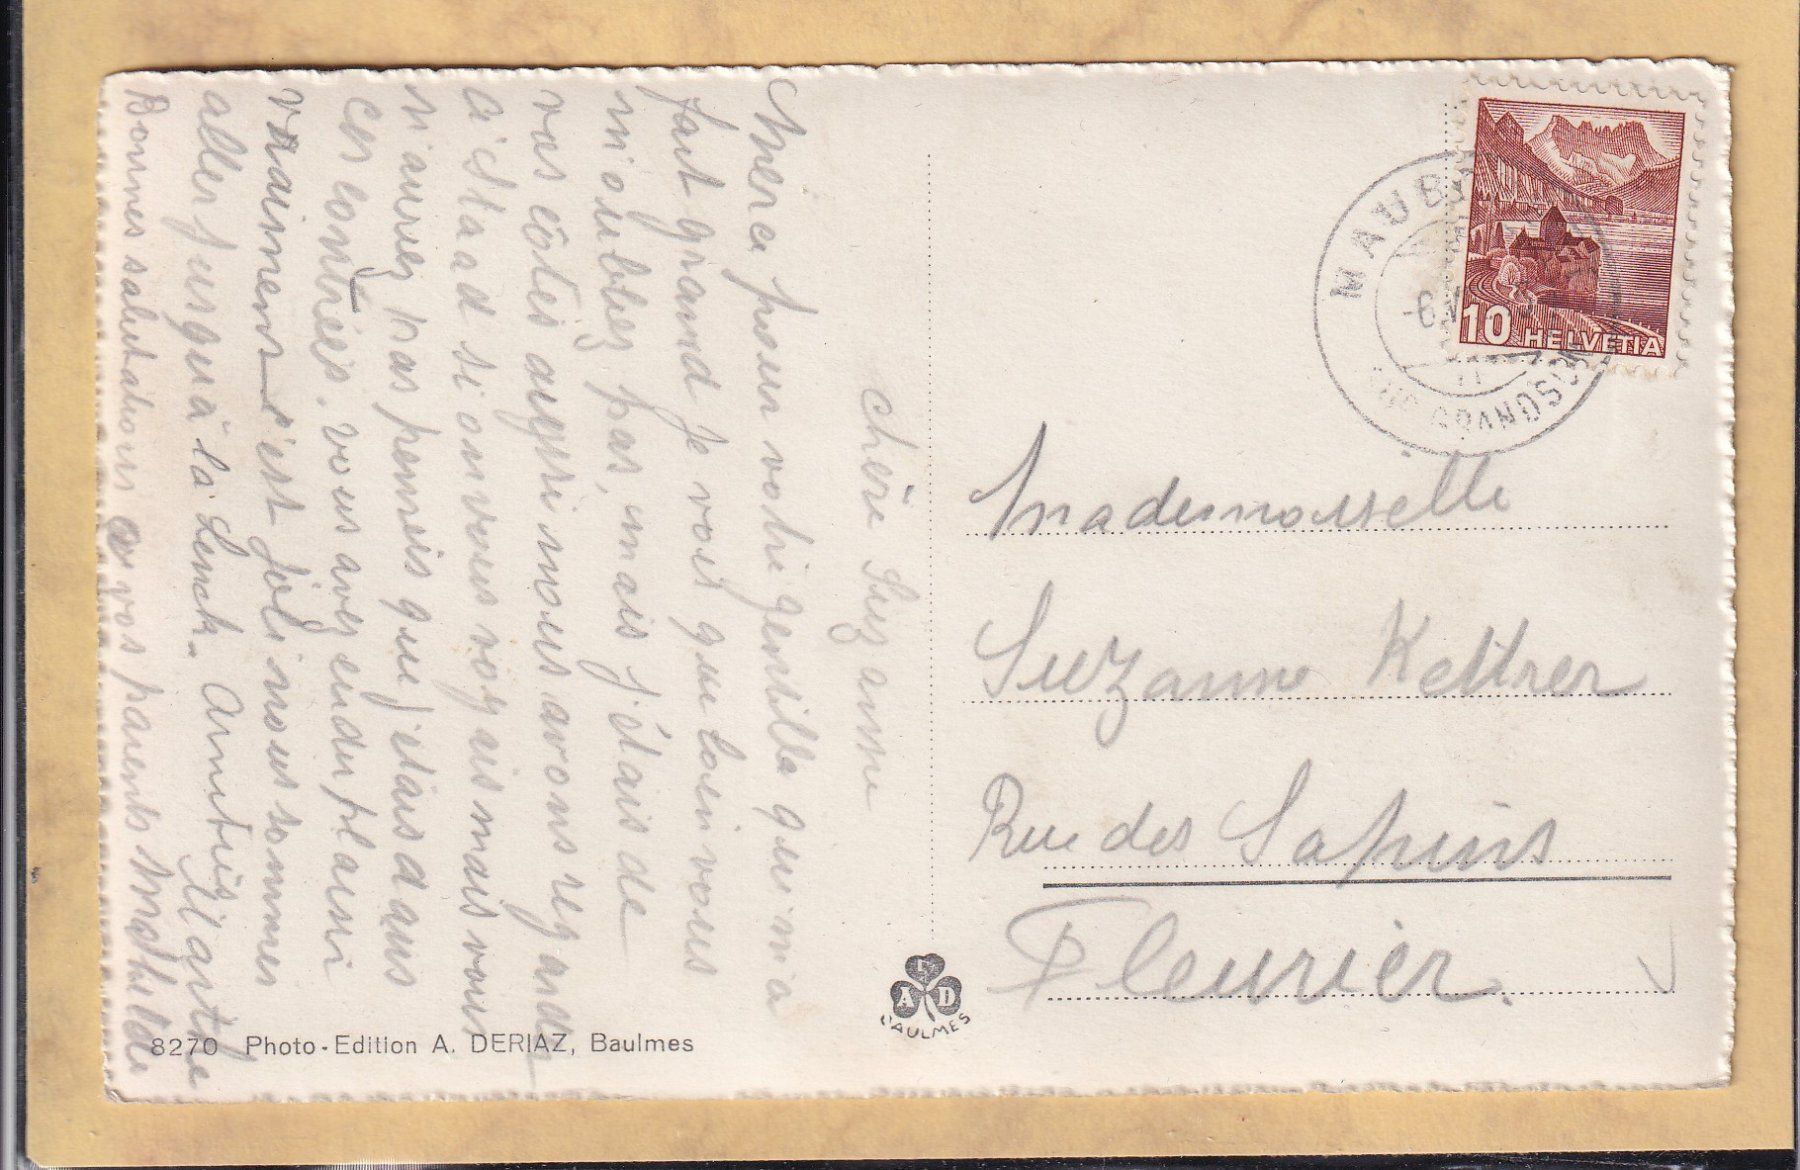 Chère Suzanne
Merci pour votre gentille qui m'a
fait grand je vois que loin vous
m'oubliez pas, mais j'étais de
vos côtés aussi nous avons regarder
Gstaad si on vous voyais mais vous
n'aurez pas pensés que j'étais dans
ces contrées. vous avez eu du plaisir
vraiment c'est joli nous sommes
aller jusqu'à la Lenk. Amitiés Marthe
Bonnes salutations a vos parents Mathilde
Mademoiselle
Suzanne Keltrer
Rue des Sapins
Fleurier.
MAUB
-6.V
GRANDSON
10 HELVETIA
A D
BAULMES
8270 Photo-Edition A. DERIAZ, Baulmes